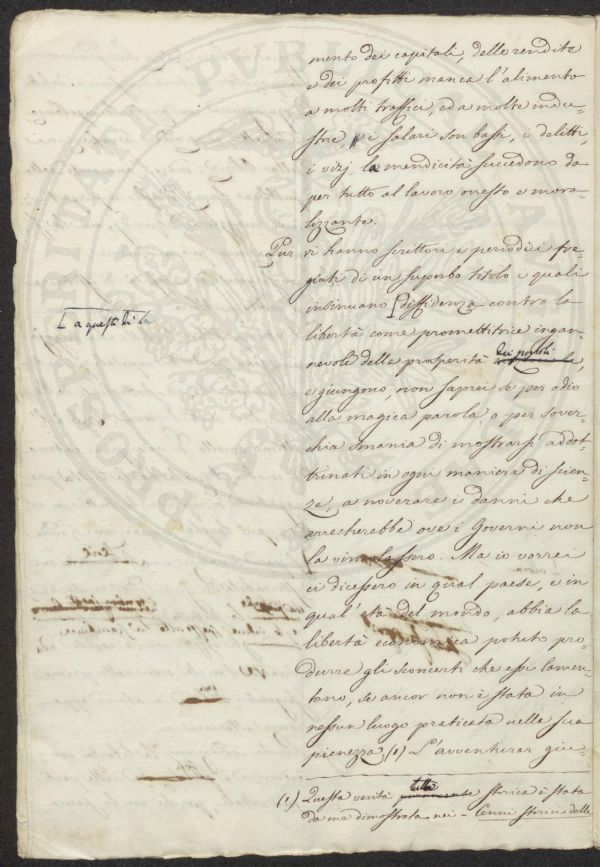 mento dei capitali, delle rendite
e dei profitti manca l'alimento
a molti traffici, ed a molte indu-
strie, i salari son bassi, i delitti,
i vizj la mendicità succedono da
per tutto al lavoro onesto e mora-
lizzante.
Pur vi hanno scrittori e periodici fre-
giati di un superbo titolo i quali
insinuano [diffidenza contro la
[a questi dì la
libertà come promettitrice ingan-
nevole della prosperità dei popoli,
e giungono, non saprei se per odio
alla magica parola, o per sover-
chia smania di mostrarsi addot-
trinati in ogni maniera di scien-
ze, a noverare i danni che
arrecherebbe ove i Governi non
la vincolassero. Ma io vorrei
ci dicessero in qual paese, e in
qual'età del mondo, abbia la
libertà economica potuto pro-
durre gli sconcerti che essi lamen-
tano, se ancor non è stata in
nessun luogo praticata nella sua
pienezza (1) L'avventurar giu-
(1) Questa verità tutta storica è stata
da me dimostrata nei - Cenni storici delle